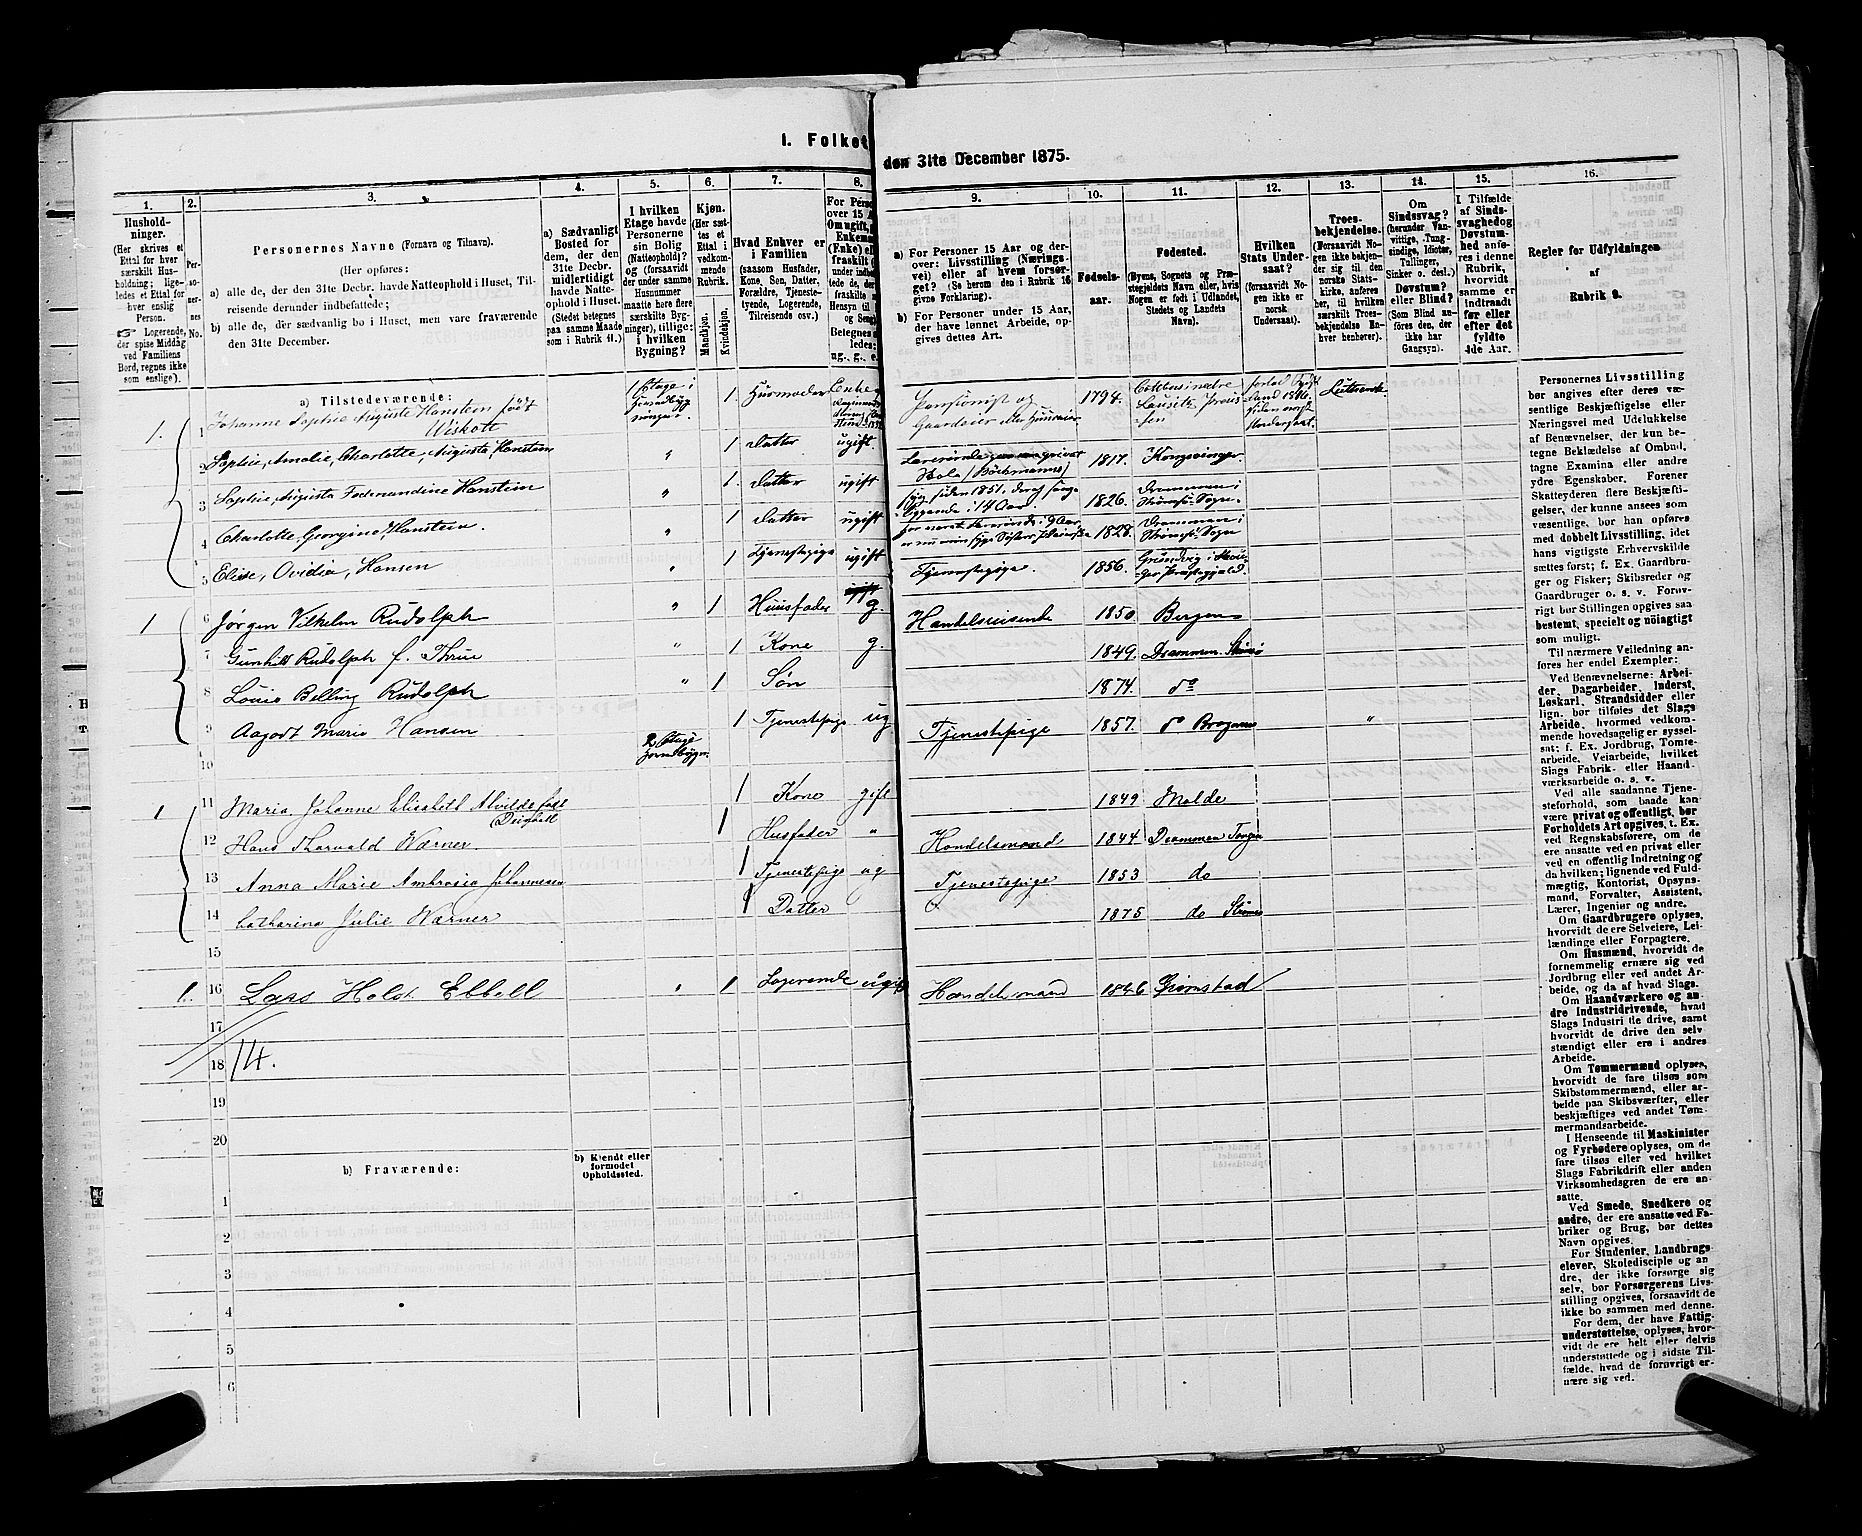 1. Folket
den 31te December 1875.
1.
Hushold-
ninger.
(Her skrives et
Ettal for hver
særskilt Hus-
holdning; lige-
ledes et Ettal for
hver enslig
Person.
Logerende,
der spise Middag
ved Familiens
Bord, regnes ikke
som enslige).
2.
Per-
so-
ner-
nes
No.
3.
Personernes Navne (Fornavn og Tilnavn).
(Her opføres:
a) alle de, der den 31te Decbr. havde Natteophold i Huset, Til-
reisende derunder indbefattede;
b) alle de, der sædvanlig bo i Huset, men vare fraværende
den 31te December.
4.
a) Sædvanligt
Bosted for
dem, der den
31te Decbr.
midlertidigt
havde Natte-
ophold i Huset.
(Stedet betegnes
paa samme Maade
som i Rubrik 11.)
5.
I hvilken
Etage havde
Personerne
sin Bolig
(Natteophold)?
og (forsaavidt
der under samme
Husnummer
maatte høre flere
særskilte Byg-
ninger), tillige:
i hvilken
Bygning?
6.
Kjøn.
(Her sæt-
tes et
Ettal i
vedkom-
mende
Rubrik.
Mandkjøn.
Kvindekjøn.
7.
Hvad Enhver er
i Familien
(saasom Husfader,
Kone, Søn, Datter,
Forældre, Tjeneste-
tyende, Logerende,
Tilreisende osv.)
8.
For Perso
over 15 A
Om ugift,
Enkema
(Enke) el
fraskilt
Betegnes
ledes:
ug., g., e.
9.
a) For Personer 15 Aar og der-
over: Livsstilling (Nærings-
vei) eller af hvem forsør-
get? (Se herom den i Rubrik 16
givne Forklaring).
b) For Personer under 15 Aar,
der have lønnet Arbeide, op-
gives dettes Art.
10.
Fødsels-
aar.
11.
Fødested.
(Byens, Sognets og Præ-
stegjeldets Navn eller, hvis
Nogen er født i Udlandet,
Stedets og Landets
Navn).
12.
Hvilken
Stats Under-
saat?
(forsaavidt No-
gen ikke er
norsk
Undersaat).
13.
Troes-
bekjendelse.
(Forsaavidt No-
gen ikke bekjen-
der sig til den
norske Stats-
kirke, anføres
her, til hvilken
særskilt Troes-
bekjendelse En-
hver henhører).
14.
Om
Sindssvag?
(herunder Van-
vittige, Tung-
sindige, Idioter,
Tullinger,
Sinker o. desl.)
Døvstum?
eller Blind?
(Som Blind an-
føres den, der
ikke har
Gangsyn).
15.
I Tilfælde
af Sinds-
svaghed og
Døvstum-
hed anfø-
res i denne
Rubrik,
hvorvidt
samme er
indtraadt
før eller
efter det
fyldte
4de Aar.
16.
Regler for Udfyldningen
af
Rubrik 9.
a) Tilstedeværende:
1. 1 Johanne Sophie Auguste Hanstein født
Wiskott
1 Etage i
1 Husmoder Enke
Pensionist og
Gaardeier 1794. Cottbus i nedre
Lausitz Preus-
sen Luthersk
2 Sophie, Amalie, Charlotte, Augusta, Hanstein " 1 Datter ugift. Lærerinde privat
Skole 1817. Kongsvinger.
3 Sophie, Augusta Ferdinandine Hanstein " 1 Datter ugift syg siden 1851, deraf senge-
liggende i 14 Aar. 1826. Drammen i
Strømsø Sogn.
4 Charlotte, Georgine, Hanstein. " 1 Datter ugift 1828. Drammen i
Strømsø Sogn
5 Elise, Ovidia, Hansen " 1 Tjenestepige ugift Tjenestepige. 1856.
Præstegjeld.
1 6 Jørgen Vilhelm Rudolph " 1 Huusfader g. Handelsreisende 1850. Bergen
7 Gunhild Rudolph f. Thrue " 1 Kone g. 1849. Drammen Strømsø
8 Louis Belling Rudolph " 1 Søn 1874. do
9 Aagodt Marie Hansen 1 Tjenestepige ug Tjenestepige 1857. do Bragernes "
10 2 Etage
Forredbygn.
1 11 Maria Johanne Elisabeth Alvilde født
1 Kone gift 1849 Molde
12 Hans Thorvald Wærner. 1 Husfader " Handelsmand 1844 Drammen Tangen
13 Anna Marie Ambrosia Johannesen 1 Tjenestepige ug Tjenestepige 1853 do
14 Catharina Julie Wærner 1 Datter 1875 do Strømsø
15
1. 16 Lars Holst Ebbell " 1 Logerende ugift Handelsmand 1846 Grimstad
17
18 14.
19
20
b) Fraværende:
b) Kjendt eller
formodet
Opholdssted.
1
2
3
4
5
6
Personernes Livsstilling
bør angives efter deres væ-
sentlige Beskjæftigelse eller
Næringsvei med Udelukkelse
af Benævnelser, der kun be-
tegne Beklædelse af Ombud,
tagne Examina eller andre
ydre Egenskaber. Forener
Skatteyderen flere Beskjæf-
tigelser, der kunne ansees som
væsentlige, bør han opføres
med dobbelt Livsstilling, idet
hans vigtigste Erhvervskilde
sættes først; f. Ex. Gaardbru-
ger og Fisker; Skibsreder og
Gaardbruger o. s. v. Forøv-
rigt bør Stillingen opgives saa
bestemt, specielt og nøiagtigt
som muligt.
Til nærmere Veiledning an-
føres her endel Exempler:
Ved Benævnelserne: Arbei-
der, Dagarbeider, Inderst,
Løskarl, Strandsidder eller
lign. bør tilføies det Slags
Arbeide, hvormed vedkom-
mende hovedsagelig er syssel-
sat; f. Ex. Jordbrug, Tomte-
arbeide, Veiarbeide, hvilket
Slags Fabrik- eller Haand-
værksarbeide o. s. v.
Ved alle saadanne Tjene-
steforhold, som baade kan
være privat og offentligt, bør
Forholdets Art opgives, t. Ex.
Regnskabsførere, om de
ere ansatte ved en privat eller
ved en offentlig Indretning og
da hvilken; lignende ved Fuld-
mægtig, Kontorist, Opsyns-
mand, Forvalter, Assistent,
Lærer, Ingeniør og andre.
Om Gaardbrugere oplyses,
hvorvidt de ere Selveiere, Lei-
lændinge eller Forpagtere.
Om Husmænd, hvorvidt de
fornemmelig ernære sig ved
Jordbrug eller ved andet Ar-
beide, og da af hvad Slags.
Om Haandværkere og an-
dre Industridrivende, hvad
Slags Industri de drive, samt
hvorvidt de drive den selv-
stændigt eller ere i andres
Arbeide.
Om Tømmermænd oplyses,
hvorvidt de fare tilsøs som
Skibstømmermænd, eller ar-
beide paa Skibsværfter, eller
beskjæftiges ved andet Tøm-
mermandsarbeide.
I Henseende til Maskinister
og Fyrbødere oplyses, om de
fare tilsøs eller ved hvilket
Slags Fabrikdrift eller anden
Virksomhedsgren de ere an-
satte.
Ved Smede, Snedkere og
andre, der ere ansatte ved Fa-
briker og Brug, bør dettes
Navn opgives.
For Studenter, Landbrugs-
elever, Skoledisciple og an-
dre, der ikke forsørge sig
selv, bør Forsørgerens Livs-
stilling opgives, forsaavidt de
ikke bo sammen med denne.
For dem, der have Fattig-
understøttelse, oplyses, hvor-
vidt de ere helt eller delvis
understøttede og i sidste Til-
fælde, hvad de forøvrigt er-
nære sig ved.